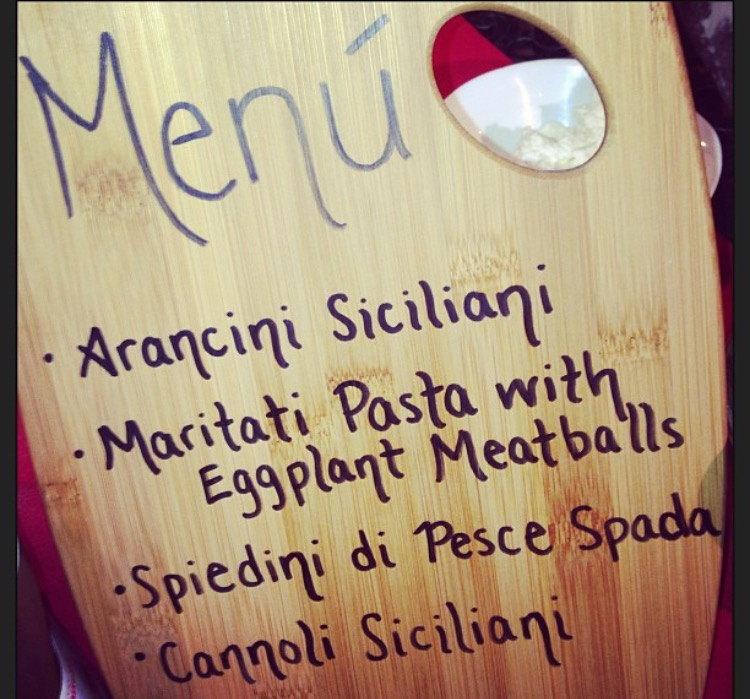 Menú
· Arancini Siciliani
· Maritati Pasta with
Eggplant Meatballs
· Spiedini di Pesce Spada
· Cannoli Siciliani